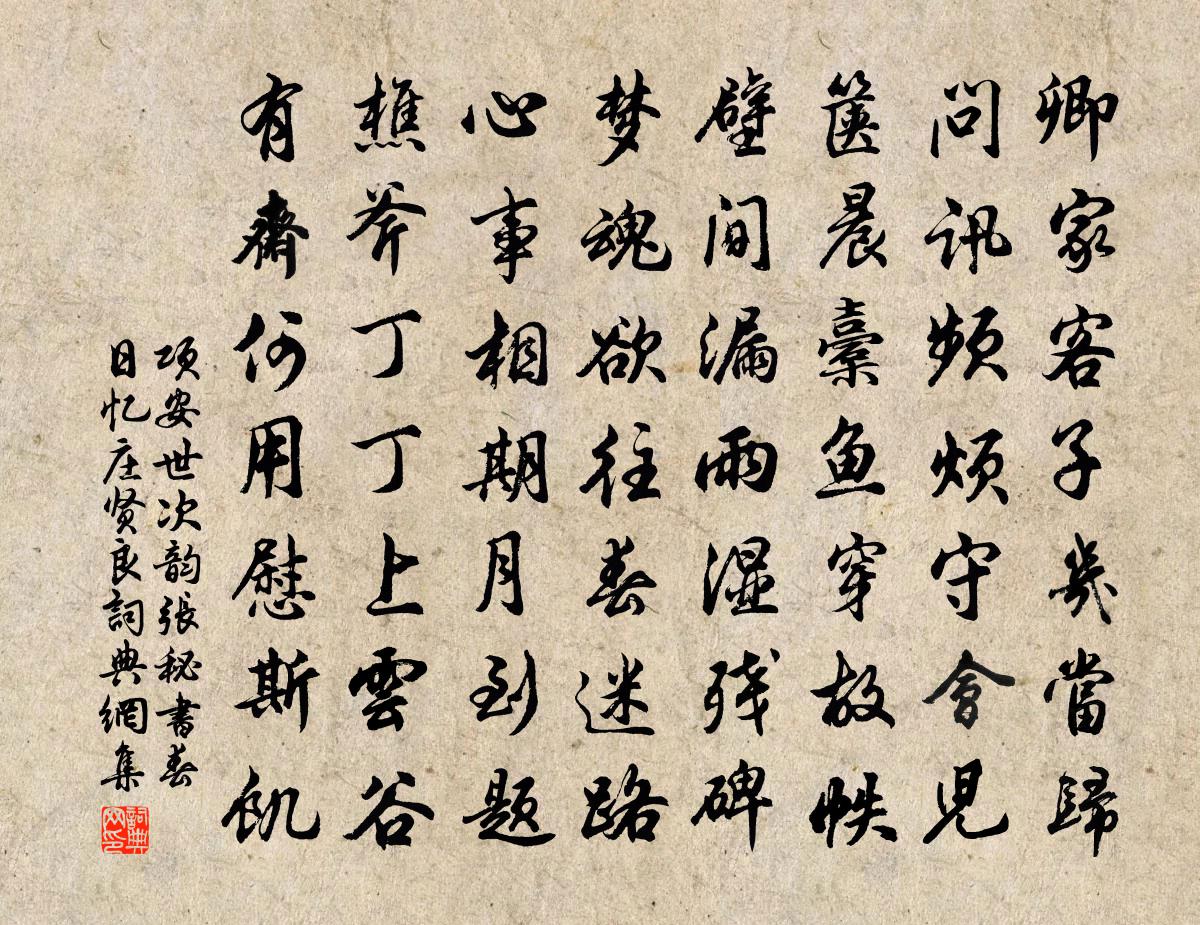 卿家客子幾當歸
問訊頻煩守舍兒
篋晨橐鱼穿故帙
壁間漏雨湿残碑
梦魂欲往春迷路
心事相期月到题
樵斧丁丁上雲谷
有齋何用慰斯飢
项安世次韵張秘書春
日忆庄贤良詞典網集
詞典网印